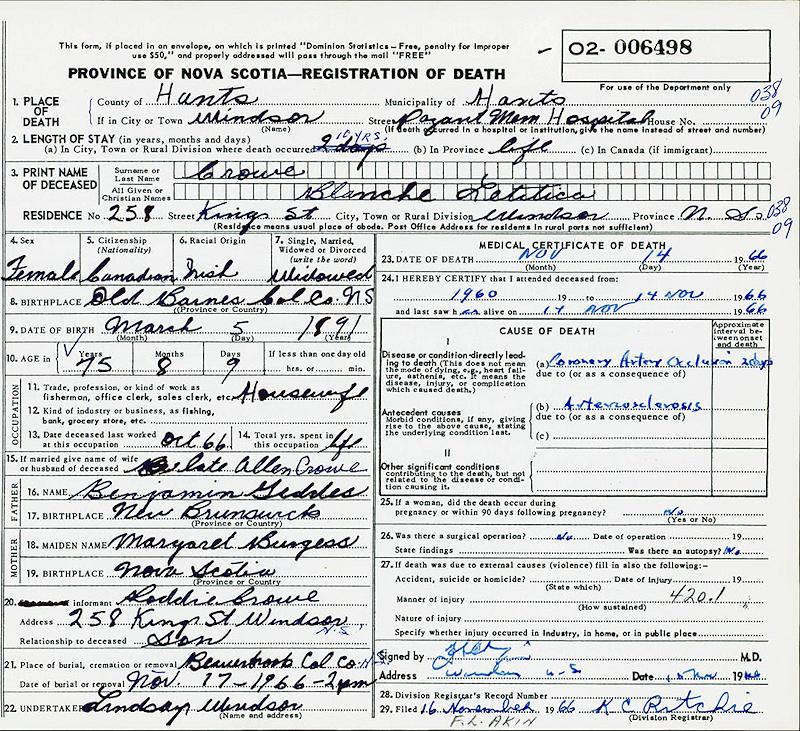 This form, if placed in an envelope, on which is printed "Dominion Statistics - Free, penalty for improper
use $50," and properly addressed will pass through the mail "FREE"
02- 006498
PROVINCE OF NOVA SCOTIA—REGISTRATION OF DEATH
For use of the Department only
1. PLACE OF DEATH { County of Hants Municipality of Hants 038
If in City or Town Windsor Street Payzant Mem Hospital House No. 09
(Name) (If death occurred in a hospital or institution, give the name instead of street and number)
2. LENGTH OF STAY (in years, months and days) 10 YRS.
(a) In City, Town or Rural Division where death occurred 2 days (b) In Province life (c) In Canada (if immigrant)
3. PRINT NAME OF DECEASED { Surname or Last Name Crowe
All Given or Christian Names Blanche Letitica
RESIDENCE No. 258 Street Kings St City, Town or Rural Division Windsor Province N. S. 038
(Residence means usual place of abode. Post Office Address for residents in rural parts not sufficient) 09
4. Sex 5. Citizenship (Nationality) 6. Racial Origin 7. Single, Married, Widowed or Divorced (write the word)
Female Canadian Irish Widowed
8. BIRTHPLACE Old Barnes Col. Co. NS
(Province or Country)
9. DATE OF BIRTH March 5 1891
(Month) (Day) (Year)
10. AGE in { Years Months Days If less than one day old
75 8 9 hrs. or min.
OCCUPATION
11. Trade, profession, or kind of work as fisherman, office clerk, sales clerk, etc. Housewife
12. Kind of industry or business, as fishing, bank, grocery store, etc.
13. Date deceased last worked at this occupation Oct 66 14. Total yrs. spent in this occupation life
15. If married give name of wife or husband of deceased late Allen Crowe
FATHER
16. NAME Benjamin Geddes
17. BIRTHPLACE New Brunswick
(Province or Country)
MOTHER
18. MAIDEN NAME Margaret Burgess
19. BIRTHPLACE Nova Scotia
(Province or Country)
20. informant Roddie Crowe
Address 258 Kings St Windsor N.S.
Relationship to deceased Son
21. Place of burial, cremation or removal Beaverbrook Col Co. N.S
Date of burial or removal Nov. 17-1966-2pm
22. UNDERTAKER Lindsay Windsor
(Name and address)
MEDICAL CERTIFICATE OF DEATH
23. DATE OF DEATH NOV 14 1966
(Month) (Day) (Year)
24. I HEREBY CERTIFY that I attended deceased from:
1960 19 to 14 NOV 1966
and last saw h er alive on 14 NOV 1966
CAUSE OF DEATH
Approximate interval between onset and death
I
Disease or condition directly leading to death (This does not mean the mode of dying, e.g., heart failure, asthenia, etc. It means the disease, injury, or complication which caused death.)
(a) Coronary Artery Occlusion 2 days
due to (or as a consequence of)
Antecedent causes
Morbid conditions, if any, giving rise to the above cause, stating the underlying condition last.
(b) Arteriosclerosis
due to (or as a consequence of)
(c)
II
Other significant conditions
contributing to the death, but not related to the disease or condition causing it.
25. If a woman, did the death occur during
pregnancy or within 90 days following pregnancy? No
(Yes or No)
26. Was there a surgical operation? No Date of operation 19
State findings Was there an autopsy? No
27. If death was due to external causes (violence) fill in also the following:-
Accident, suicide or homicide? Date of injury 19
(State which)
Manner of injury 420.1
(How sustained)
Nature of injury
Specify whether injury occurred in Industry, in home, or in public place
Signed by M.D.
Address Windsor N-S Date 15 Nov 1966
28. Division Registrar's Record Number
29. Filed 16 November 1966 K C Ritchie
F. L. AKIN (Division Registrar)